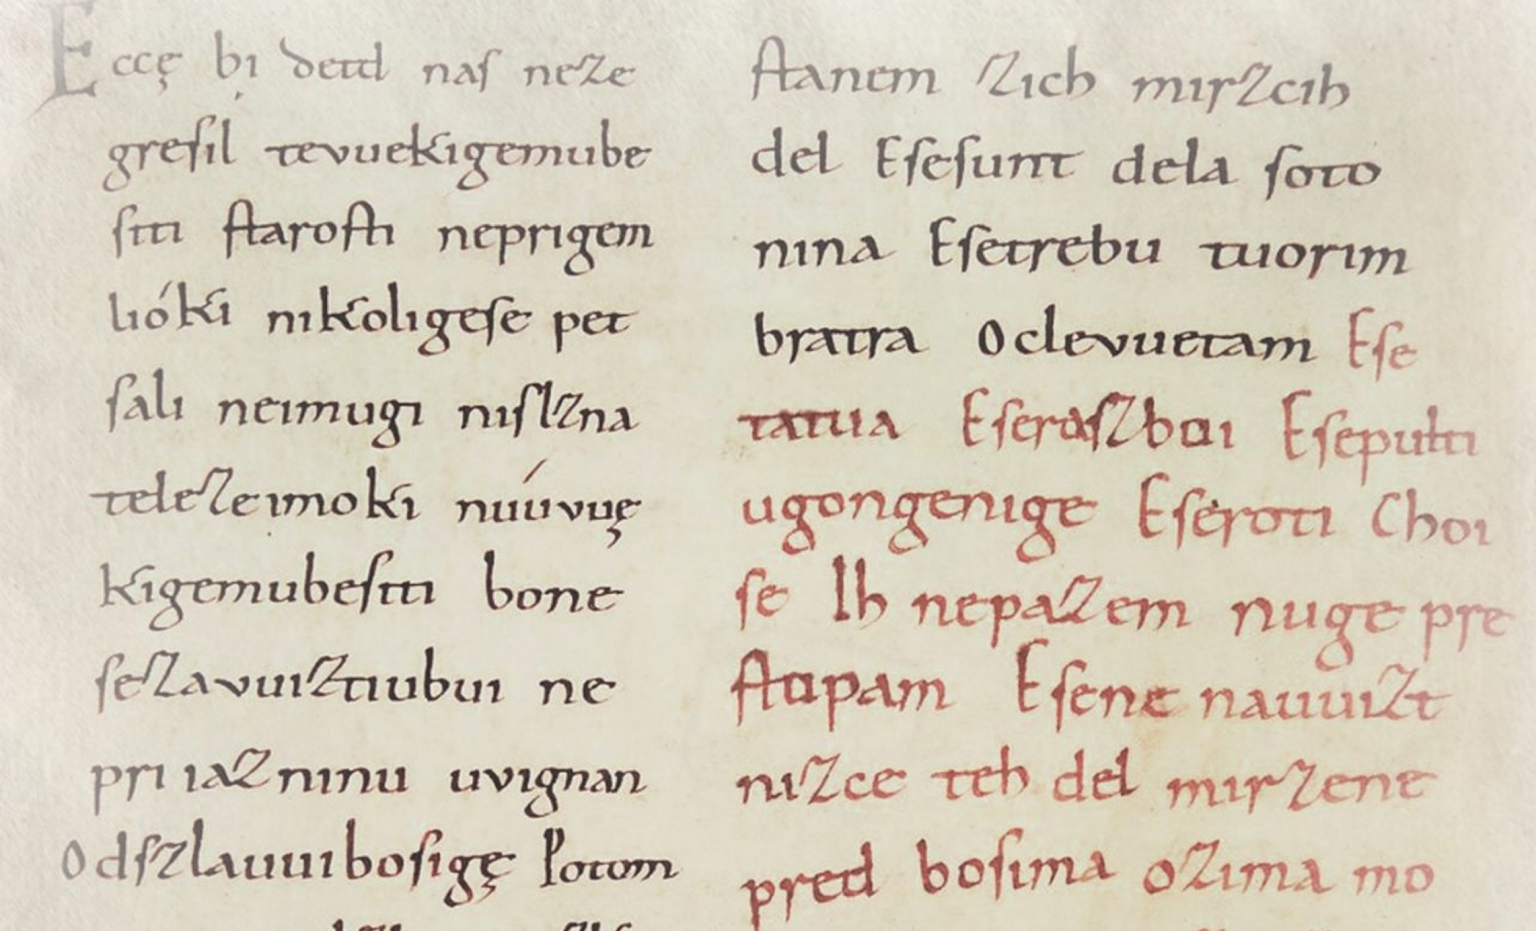 Eccę bi detd naſ neze
greſil tevuekigemube
ſiti ſtaroſti neprigem
lióki nikoligeſe pet
ſali neimugi niſlzna
telezeimoki nuúvuę
kigemubeſiti bone
ſezavuiztiubui ne
priiaznninu uvignan
Odſzlauuiboſigę Potom
ſtanem zich mirzcih
del Eſeſunt dela ſoto
nina Eſetrebu tuorim
bratra Oclevuetam Eſe
tatua Eſeraſzboi Eſepulti
ugongenige Eſeroti Choi
ſe Ih nepazem nuge pre
ſtopam Eſene nauuizt
nizce teh del mirzene
pred boſima ozima mo